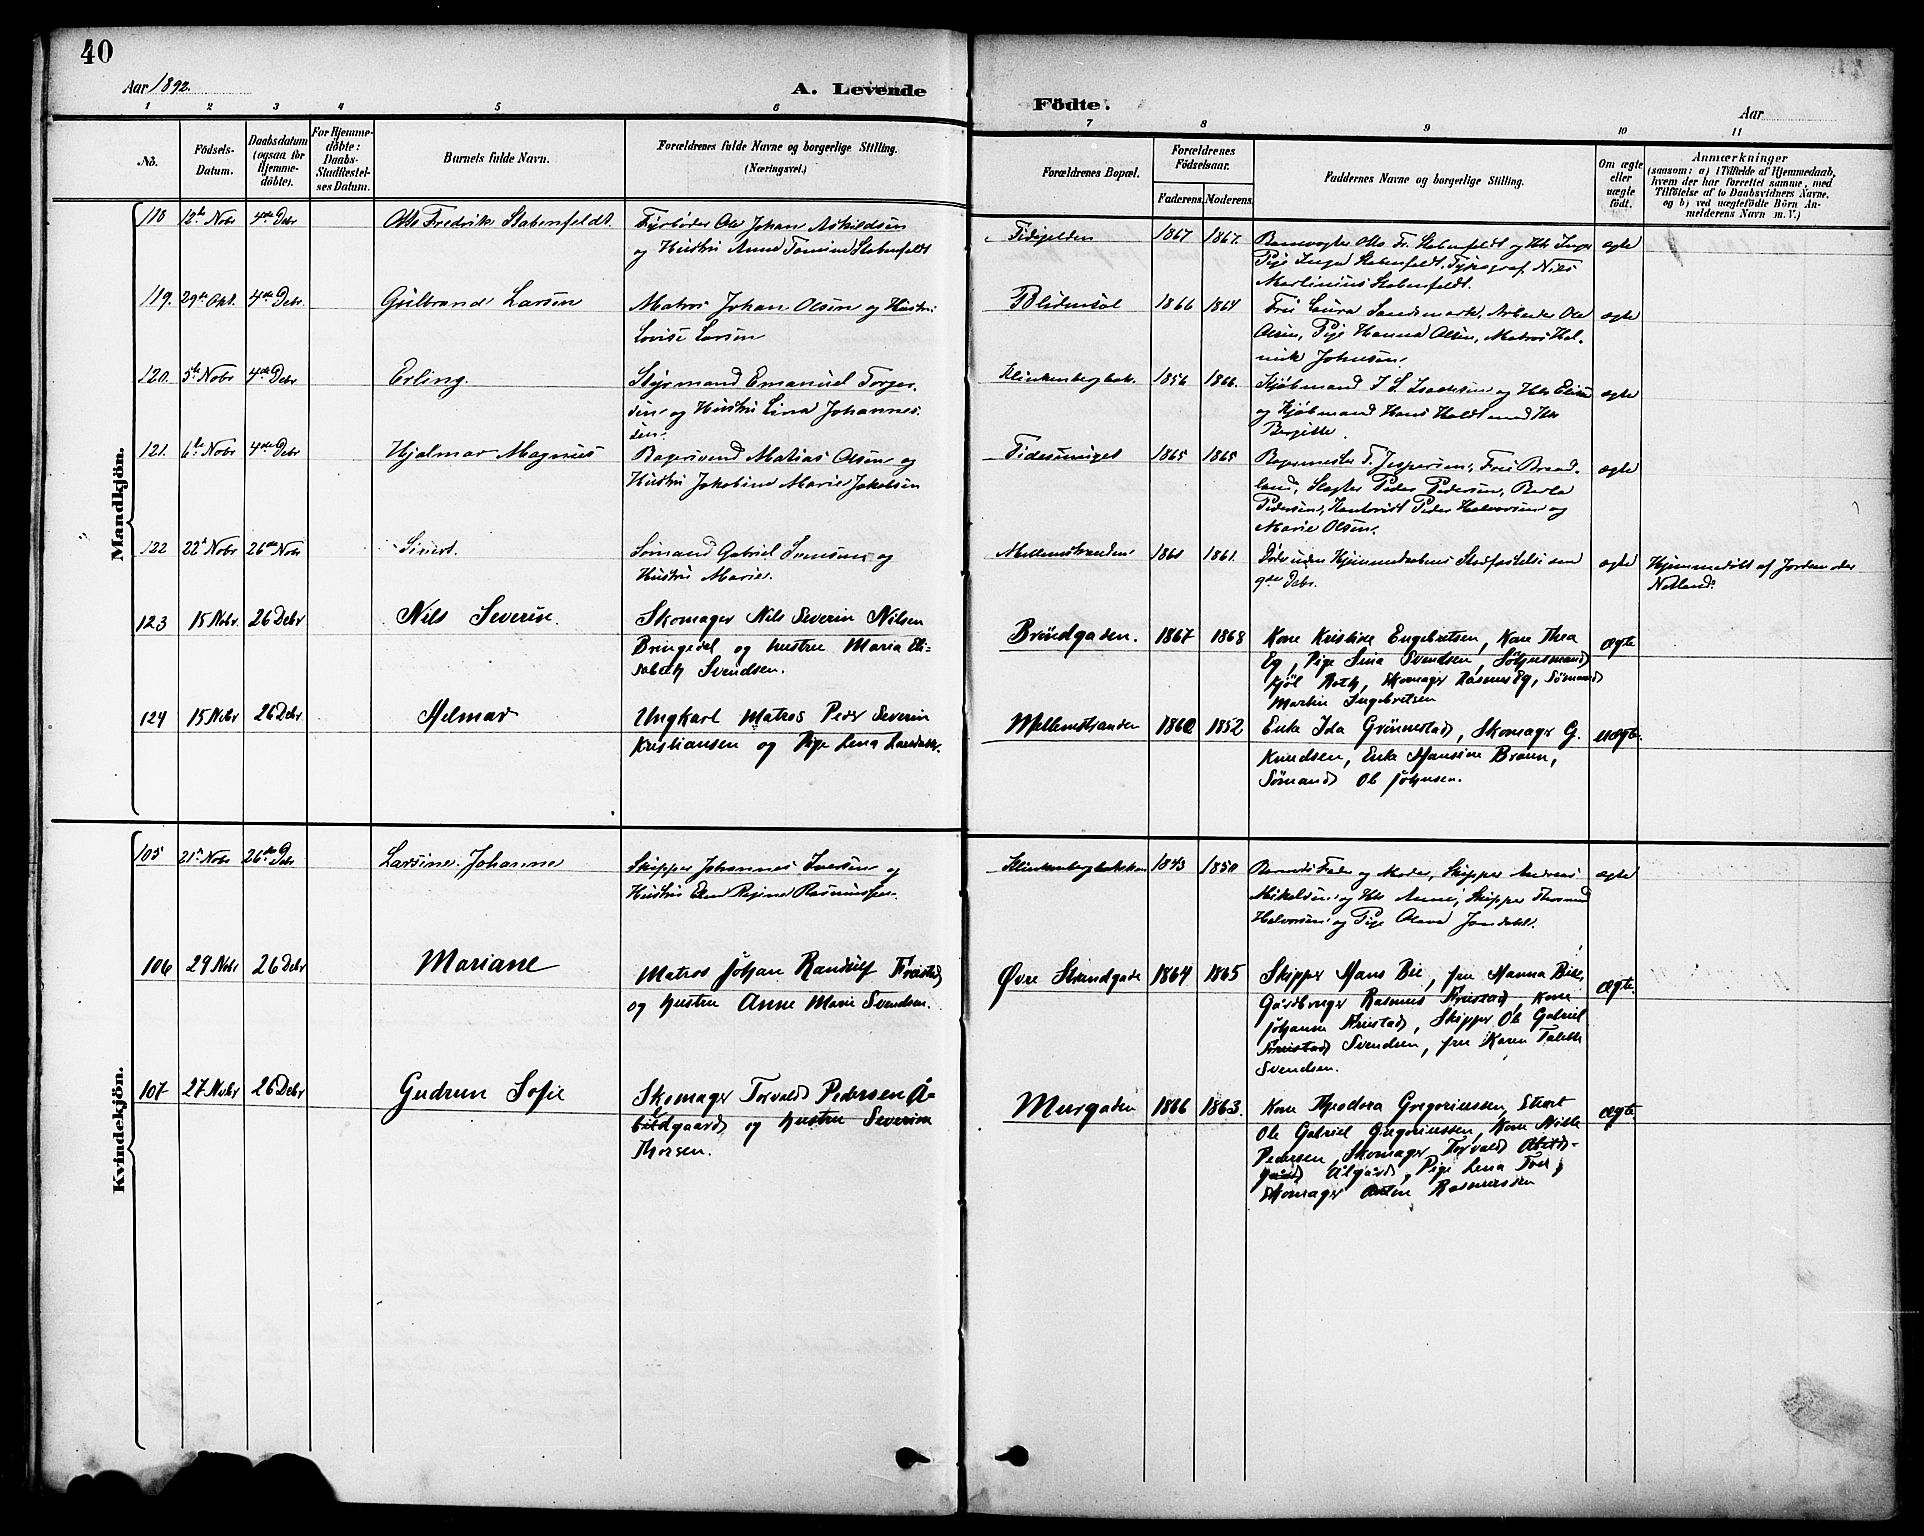 40
Aar 1892.
A. Levende
Födte.
Aar
1 2 3 4 5 6
7 8 9 10 11
No.
Födsels-
Datum.
Daabsdatum
(ogsaa for
Hjemme-
döbte).
For Hjemme-
döbte:
Daabs-
Stadfæstel-
ses Datum.
Barnets fulde Navn.
Forældrenes fulde Navne og borgerlige Stilling.
(Næringsvei.)
Forældrenes Bopæl.
Forældrenes
Födselsaar.
Faderens. Moderens.
Faddernes Navne og borgerlige Stilling.
Om ægte
eller
uægte
födt.
Anmærkninger
(saasom: a) i Tilfælde af Hjemmedaab,
hvem der har forrettet samme, med
Tilföielse af to Daabsvidners Navne,
og b) ved uægtefödte Börn An-
melderens Navn m. V.)
Mandkjön.
118 12te Nobr 4de Debr Otto Fredrik Stabenfeldt. Fyrbøder Ole Johan Askildsen
og Hustru Anne Tomine Stabenfeldt
1867 1867. Otto Fr. Stabenfeldt og
Pige Inga Stabenfeldt, Typograf Nils
Martinius Stabenfeldt.
ægte
119. 29de Okt. 4de Debr. Gulbrand Larsen Matros Johan Olsen og Hustru
Lovise Larsen
Blidensol 1866 1864 Frue Laura Sandsmark, Arbeider Ole
Olsen, Pige Hanna Olsen, Matros
Johnsen.
ægte
120. 5te Nobr 4de Debr Erling. Styrmand Emanuel Torger-
sen og Hustru Lina Johannes-
sen.
Klinkenbergbak. 1856 1866. Kjøbmand I. S. Isachsen og
og Kjøbmand Hans Holdt med Hs
Bergitte.
ægte
121. 6te Nobr 4de Debr Hjalmar Magnus Bagersvend Matias Olsen og
Hustru Jakobine Marie Jakobsen
1865 1865 Bagermester T. Jespersen, Frue
Slagter Peder Pedersen, Berta
Pedersen, Peder Halvorsen og
Marie Olsen.
ægte
122 22de Nobr 26de Nobr Sivert. Sømand Gabriel og
Hustru Marie.
Mellemstranden 1861 1861. Døde uden Hjemmedaabens Stadfæstelse den
9de Debr.
ægte Hjemmedøbt af Jordemoder
Netland.
123 15 Nobr. 26 Debr Nils Severin. Skomager Nils Severin Nilsen
Bringedal og Hustru Maria Eli-
sabeth Svendsen.
Brøndgaden. 1867 1868 Kone Kristine Engebretsen, Kone Thea
Eg, Pige Lina Svendsen,
Kjøl Roth, Skomager Rasmus Eg, Sømand
Martin Ingebretsen
ægte
124 15 Nobr 26 Debr Helmar Ungkarl Matros Peder Severin
Kristiansen og Pige Lena
Mellemstranden 1860 1852 Enke Ida Grønnestad, Skomager G.
Knudsen, Enke Hansine Braun,
Sømand Ole Johnsen.
uægte.
Kvindekjön.
105 21de Nobr 26de Debr Larsine Johanne Skipper Johannes Iversen og
Hustru Elen Regine Rasmussen.
1843 1850 Barnets Fader og Moder, Skipper Andreas
Mikelsen og Hs Anne, Skipper
Halvorsen og Pige Olava
ægte
106 29 Nobr 26 Debr Mariane Matros Johan Randulf Freistad
og Hustru Anne Marie Svendsen.
Øvre Strandgade 1864 1865 Skipper Hans Bie, frue Hanna Bie,
Gårdbruger Rasmus Freistad, Kone
Johanne Freistad, Skipper Ole Gabriel
Freistad Svendsen, frue Karen Talette
Svendsen.
ægte.
107 27 Nobr 26 Debr Gudrun Sofie Skomager Torvald Pedersen Å-
bildgaard og Hustru Severine
Thorsen.
Murgaden 1866 1863. Kone Theodora Gregoriussen, Stuert
Ole Gabriel Gregoriussen, Kone Nille
Pedersen, Skomager Torvald
gaard Ålgård, Pige Lena
Skomager Rasmussen
ægte